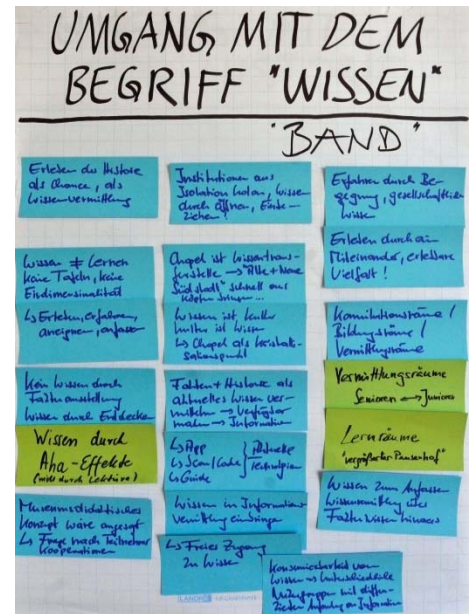 UMGANG MIT DEM
BEGRIFF "WISSEN"
"BAND"
Erleben der Historie
als Chance, als
Wissensvermittlung
Wissen ≠ Lernen
keine Tafeln, keine
Eindimensionalität
↳ Erleben, erfahren,
aneignen, anfassen
Kein Wissen durch
Faktenausstellung
Wissen durch Entdecken
Wissen durch
Aha-Effekte
(nicht durch Lektüre)
Museumsdidaktisches
Konzept wäre angesagt
↳ Frage nach Teilnehmer
Kooperationen
Institutionen aus
Isolation holen, Wissen
durch öffnen, Einbe-
ziehen!
Chapel ist Wissenstrans-
ferstelle → "Alte + Neue
Südstadt" schnell aus
Wissen ist Kultur
Kultur ist Wissen
↳ Chapel als Kristalli-
sationspunkt
Fakten + Historie als
aktuelles Wissen ver-
mitteln → Verfügbar
machen → Information
↳ App
↳ Scan/Code
↳ Guide
aktuelle
Technologien
Wissen in Informations-
vermittlung einbringen
↳ Freier Zugang
zu Wissen
Konsumierbarkeit von
Wissen → unterschiedliche
Nutzergruppen mit differen-
zierten Anfragen Information
Erfahren durch Be-
gegnung, gesellschaftliches
Wissen
Erleben durch ein
Miteinander, erlebbare
Vielfalt!
Kommunikationsräume /
Bildungsräume /
Vermittlungsräume
Vermittlungsräume
Senioren ↔ Junioren
Lernräume
"vergrößerter Pausenhof"
Wissen zum Anfassen
Wissensvermittlung über
Faktenwissen hinaus